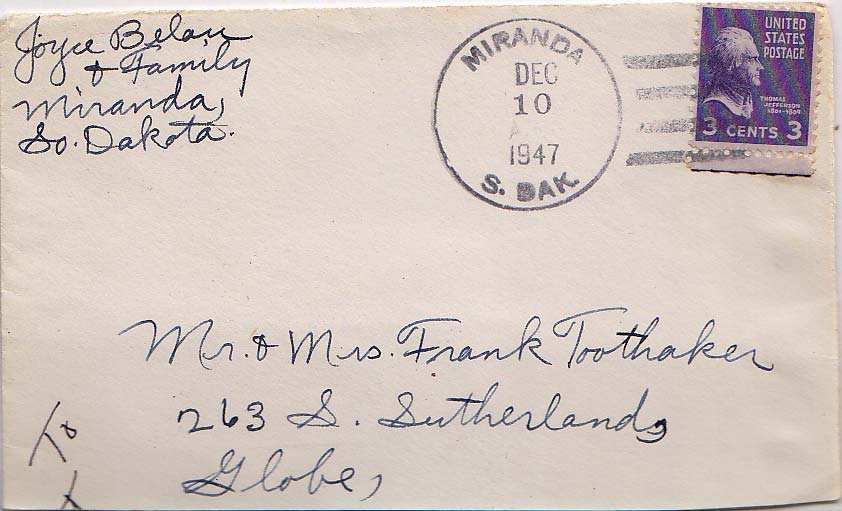 Joyce Belau
& Family
Miranda,
So. Dakota.
MIRANDA
DEC
10
1947
S. DAK.
UNITED
STATES
POSTAGE
THOMAS
JEFFERSON
1801-1809
3 CENTS 3
Mr. & Mrs. Frank Toothaker
263 S. Sutherland,
Globe,
To